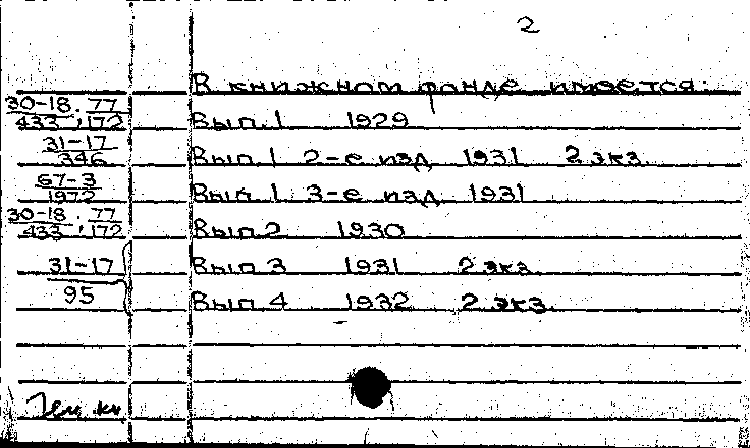 2
В книжном фонде имеется:
30-18. 77
433 ; 172 Вып. 1 1929
31-17
346 Вып. 1 2-е изд. 1931 2 экз.
67-3
1972 Вып. 1 3-е изд. 1931
30-18. 77
433 ; 172 Вып. 2 1930
31-17
95 Вып. 3 1931 2 экз.
Вып. 4 1932 2 экз.